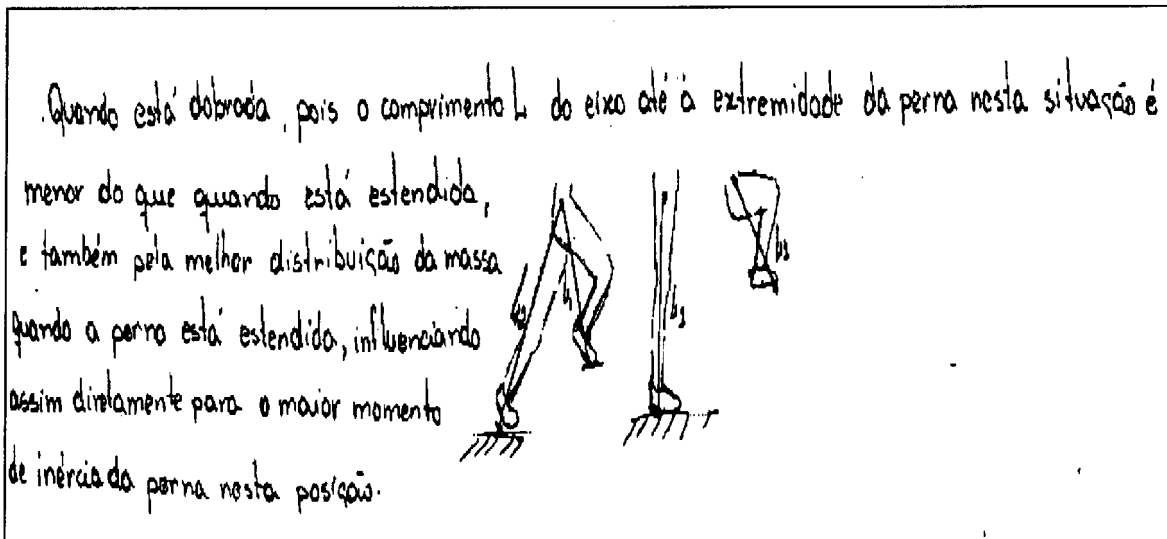 Quando está dobrada, pois o comprimento L do eixo até à extremidade da perna nesta situação é
menor do que quando está estendida,
e também pela melhor distribuição da massa
quando a perna está estendida, influenciando
assim diretamente para o maior momento
de inércia da perna nesta posição.